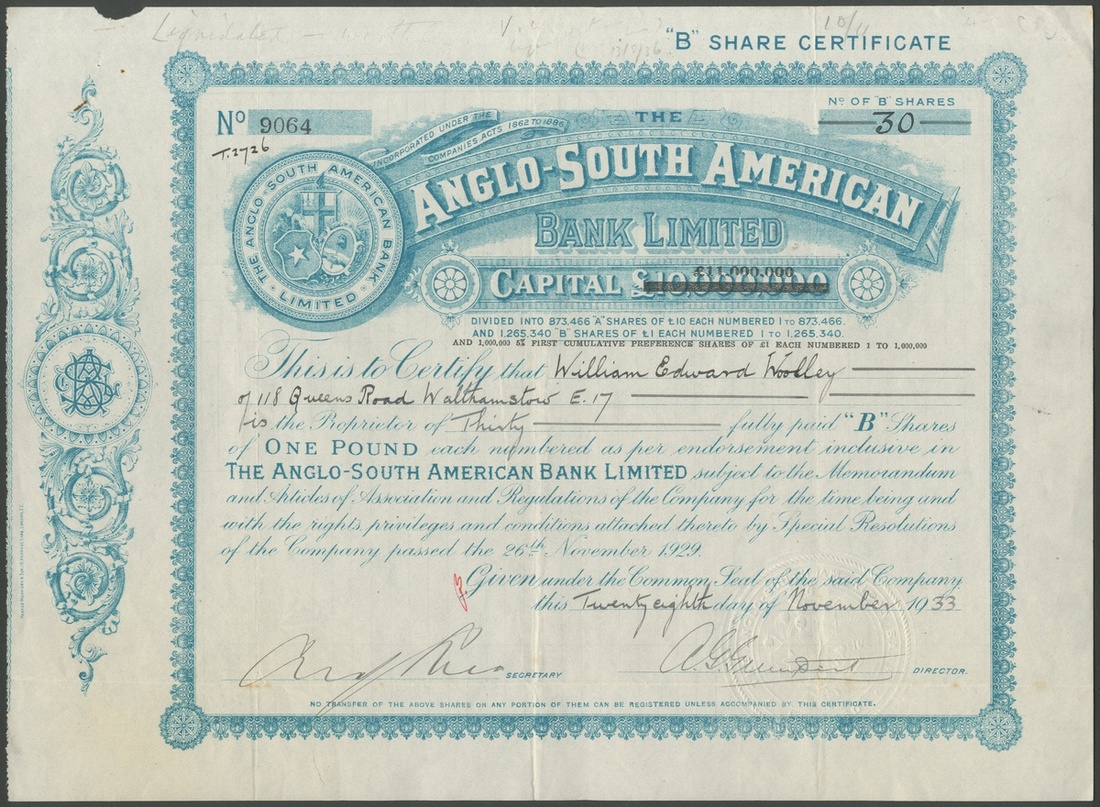 Liquidated –
"B" SHARE CERTIFICATE
Nº 9064
T.2726
INCORPORATED UNDER THE
COMPANIES ACTS 1862 TO 1886
Nº OF "B" SHARES
30
THE
ANGLO-SOUTH AMERICAN
BANK LIMITED
THE ANGLO-SOUTH AMERICAN BANK
· LIMITED ·
CAPITAL £10,000,000
£11,000,000
DIVIDED INTO 873,466 "A" SHARES OF £10 EACH NUMBERED 1 TO 873,466.
AND 1,265,340 "B" SHARES OF £1 EACH NUMBERED 1 TO 1,265,340.
AND 1,000,000 5% FIRST CUMULATIVE PREFERENCE SHARES OF £1 EACH NUMBERED 1 TO 1,000,000
This is to Certify that William Edward Woolley
of 118 Queens Road Walthamstow E.17
is the Proprietor of Thirty fully paid "B" Shares
of ONE POUND each numbered as per endorsement inclusive in
THE ANGLO-SOUTH AMERICAN BANK LIMITED subject to the Memorandum
and Articles of Association and Regulations of the Company for the time being and
with the rights, privileges and conditions attached thereto by Special Resolutions
of the Company passed the 26th November 1929.
Given under the Common Seal of the said Company
this Twenty eighth day of November 1933
SECRETARY
DIRECTOR.
NO TRANSFER OF THE ABOVE SHARES OR ANY PORTION OF THEM CAN BE REGISTERED UNLESS ACCOMPANIED BY THIS CERTIFICATE.